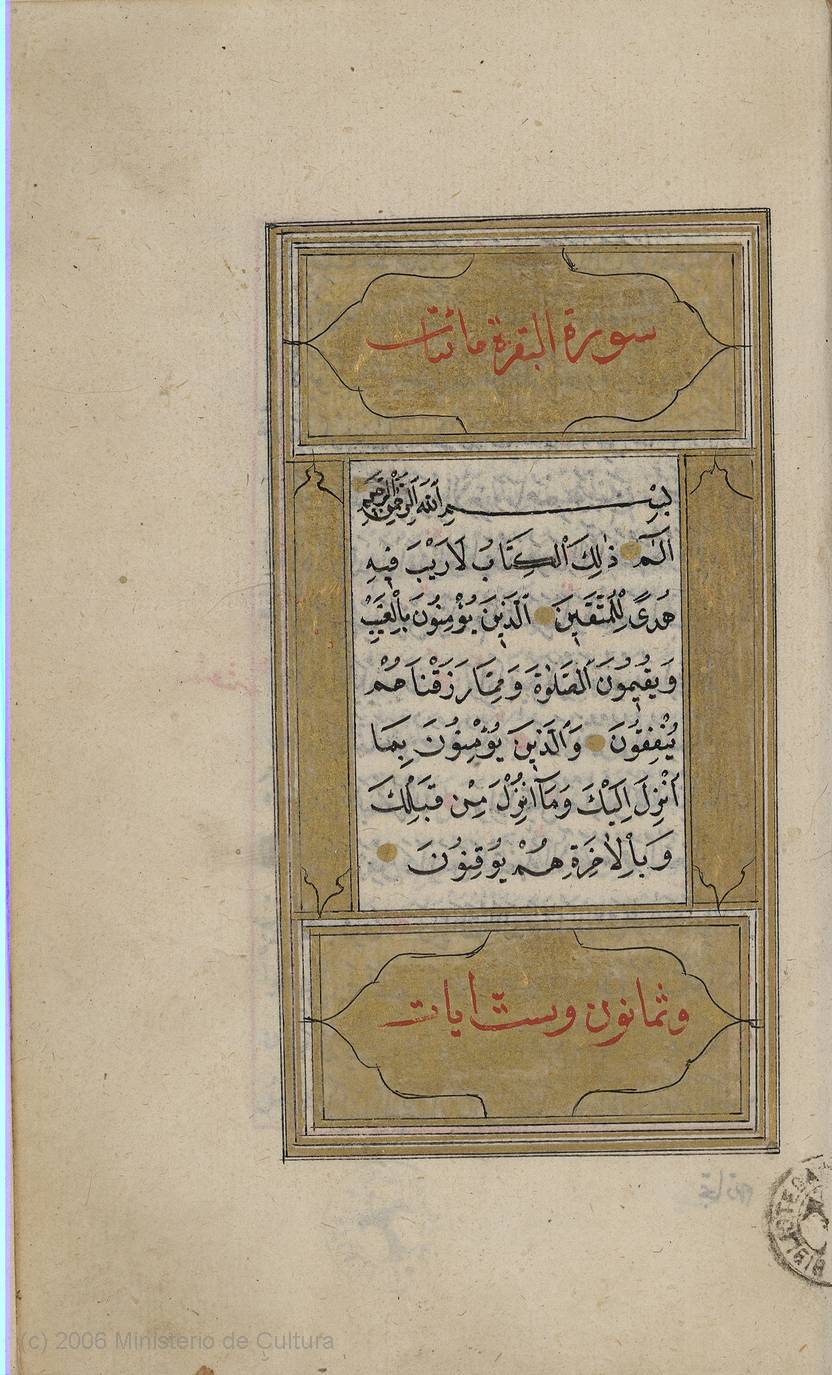 سورة البقرة مائتان
بِسْمِ ٱللَّهِ ٱلرَّحْمٰنِ ٱلرَّحِيمِ
الٓمٓ ذٰلِكَ ٱلْكِتَابُ لَا رَيْبَ فِيهِ
هُدًى لِلْمُتَّقِينَ ٱلَّذِينَ يُؤْمِنُونَ بِٱلْغَيْبِ
وَيُقِيمُونَ ٱلصَّلٰوةَ وَمِمَّا رَزَقْنَاهُمْ
يُنْفِقُونَ وَٱلَّذِينَ يُؤْمِنُونَ بِمَا
أُنْزِلَ اِلَيْكَ وَمَآ اُنْزِلَ مِنْ قَبْلِكَ
وَبِٱلْاٰخِرَةِ هُمْ يُوقِنُونَ
وثمانون وست ايات
(c) 2006 Ministerio de Cultura